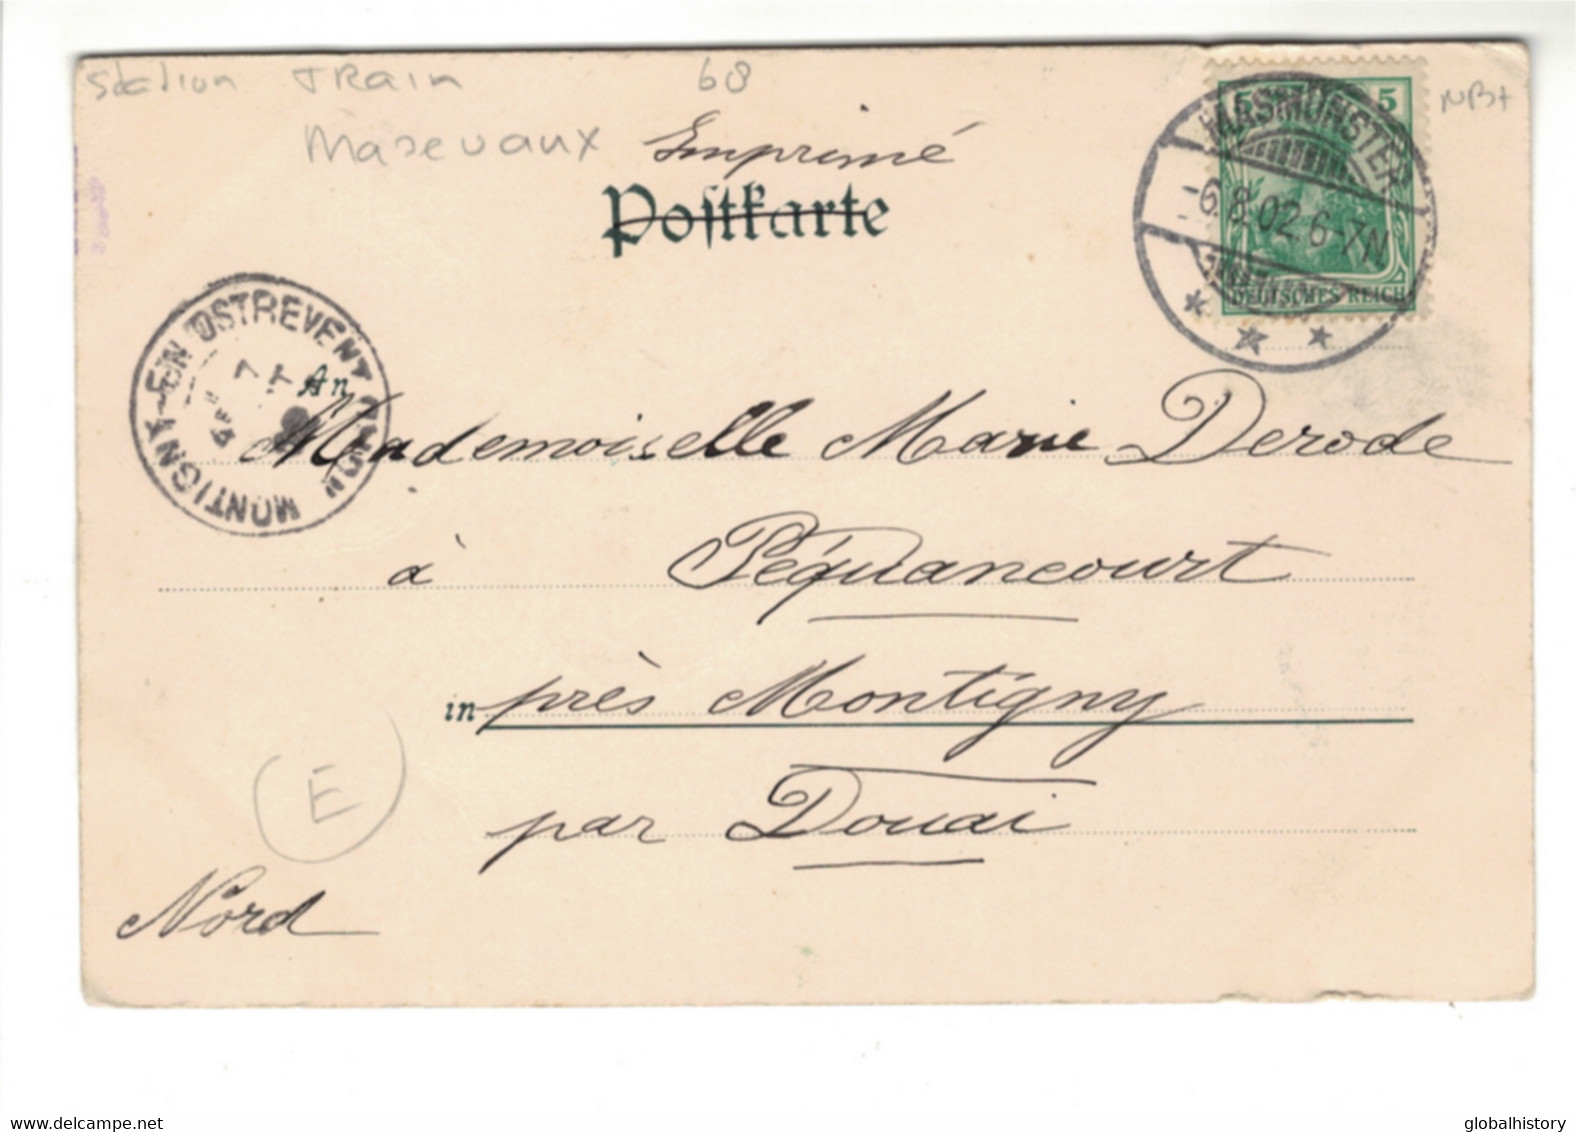 Station TRain 68
Masevaux Imprimé
Postkarte
5 5
MASMÜNSTER
-6.8.02.6-7N
DEUTSCHES REICH
MONTIGNY-EN OSTREVENT (NORD)
7
An
Mademoiselle Marie Derode
à Péquancourt
in près Montigny
par Douai
E
Nord
delcampe.net
globalhistory